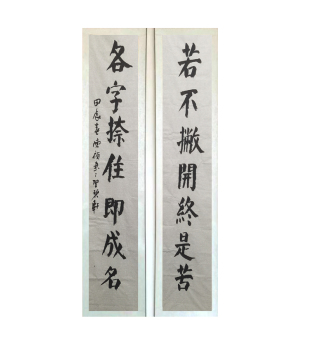 若不撇開終是苦
各字捺住即成名